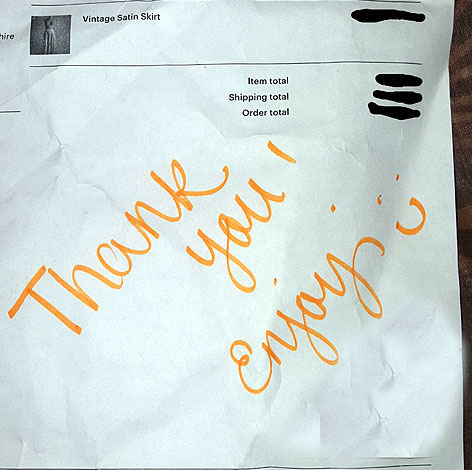 hire
Vintage Satin Skirt
Item total
Shipping total
Order total
Thank
you!
Enjoy :)